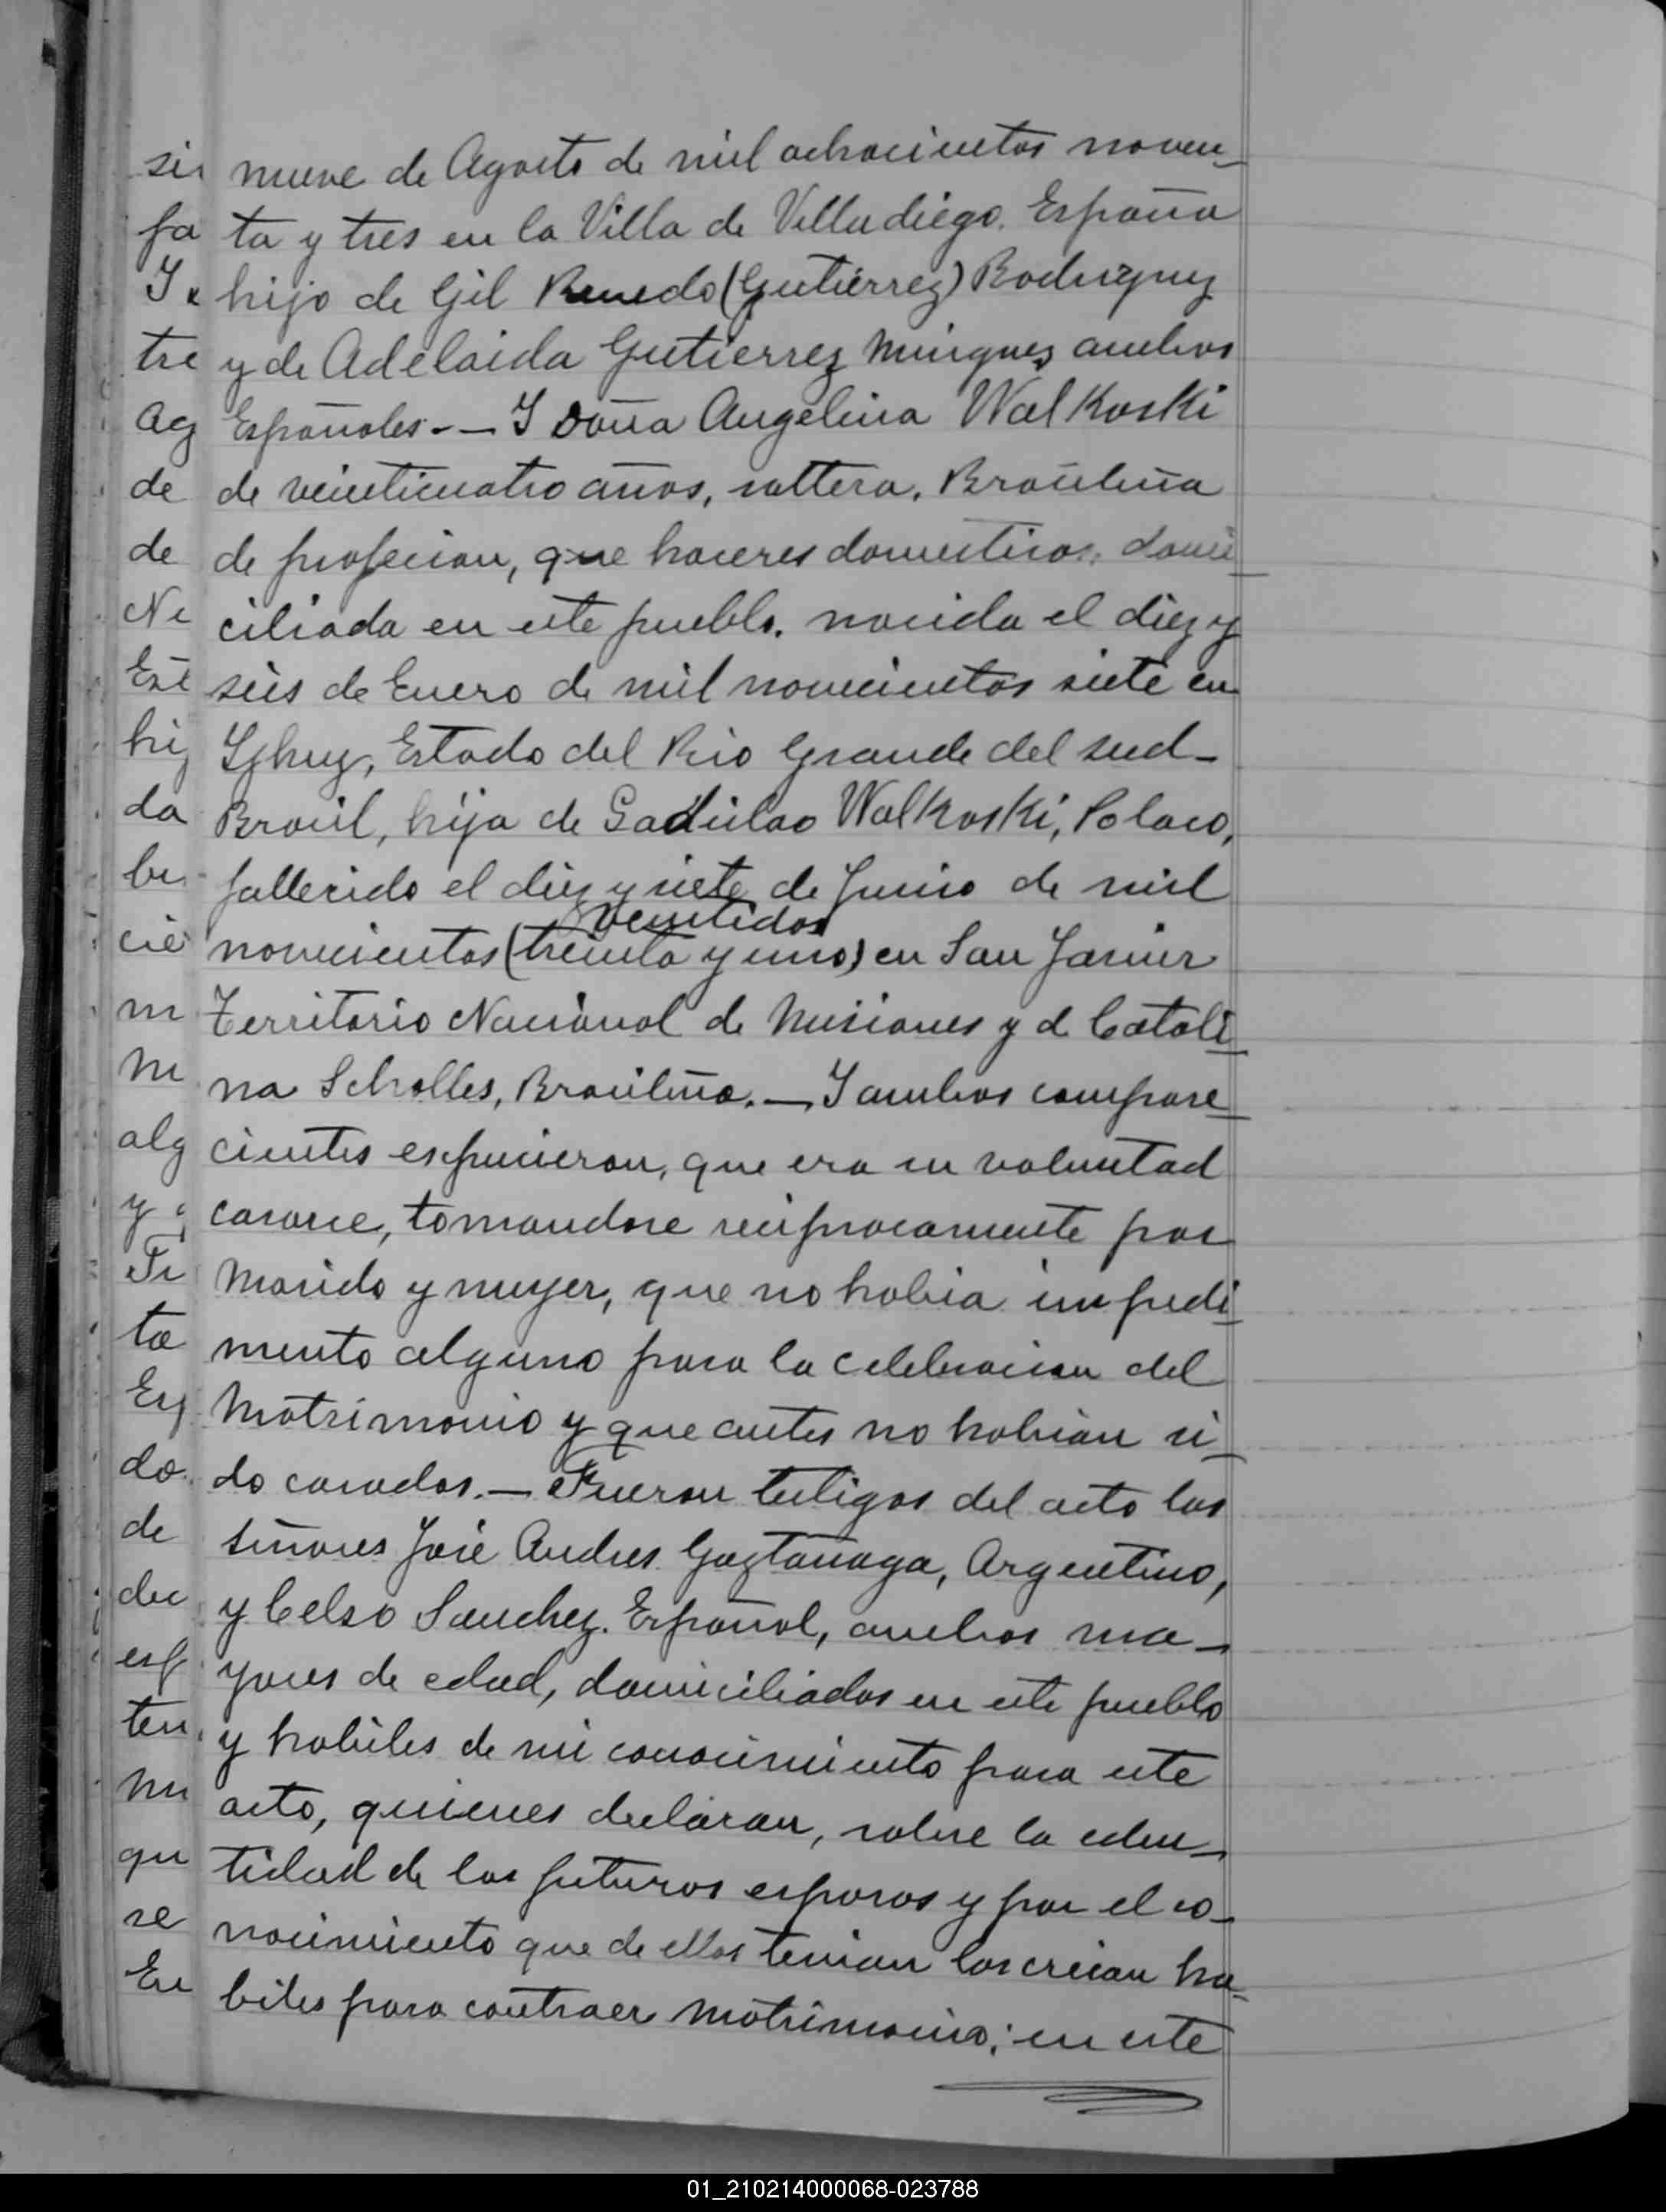 nueve de Agosto de mil ochocientos noven-
ta y tres en la Villa de Villadiego. España
hijo de Gil Renedo (Gutiérrez) Rodriguez
y de Adelaida Gutierrez Minguez ambos
Españoles. - — I Doña Angelina WalKoski
de veinticuatro años, soltera, Brasileña
de profecion, que haceres domesticos, domi-
ciliada en este pueblo. nacida el diez y
seis de Enero de mil novecientos siete en
Yjhuy, Estado del Rio Grande del sud-
Brasil, hija de Ladislao WalKoski, Polaco,
fallecido el diez y siete de Junio de mil
veintidos
novecientos (treinta y uno) en San Javier
Territorio Nacional de Misiones y d Catali-
na Scholles, Brasileña. — I ambos compare-
cientes espusieron, que era su voluntad
casarse, tomandose reciprocamente por
Marido y muger, que no habia impedi-
mento alguno para la celebracion del
Matrimonio y que antes no habian si-
do casados. — Fueron testigos del acto los
señores José Andres Gaztañaga, Argentino,
y Celso Sanchez. Español, ambos ma-
yores de edad, domiciliados en este pueblo
y habiles de mi conocimiento para este
acto, quienes declaran, sobre la eden-
tidad de los futuros esposos y por el co-
nocimiento que de ellos tenian los creian ha-
biles para contraer Matrimonio; en este
01_210214000068-023788